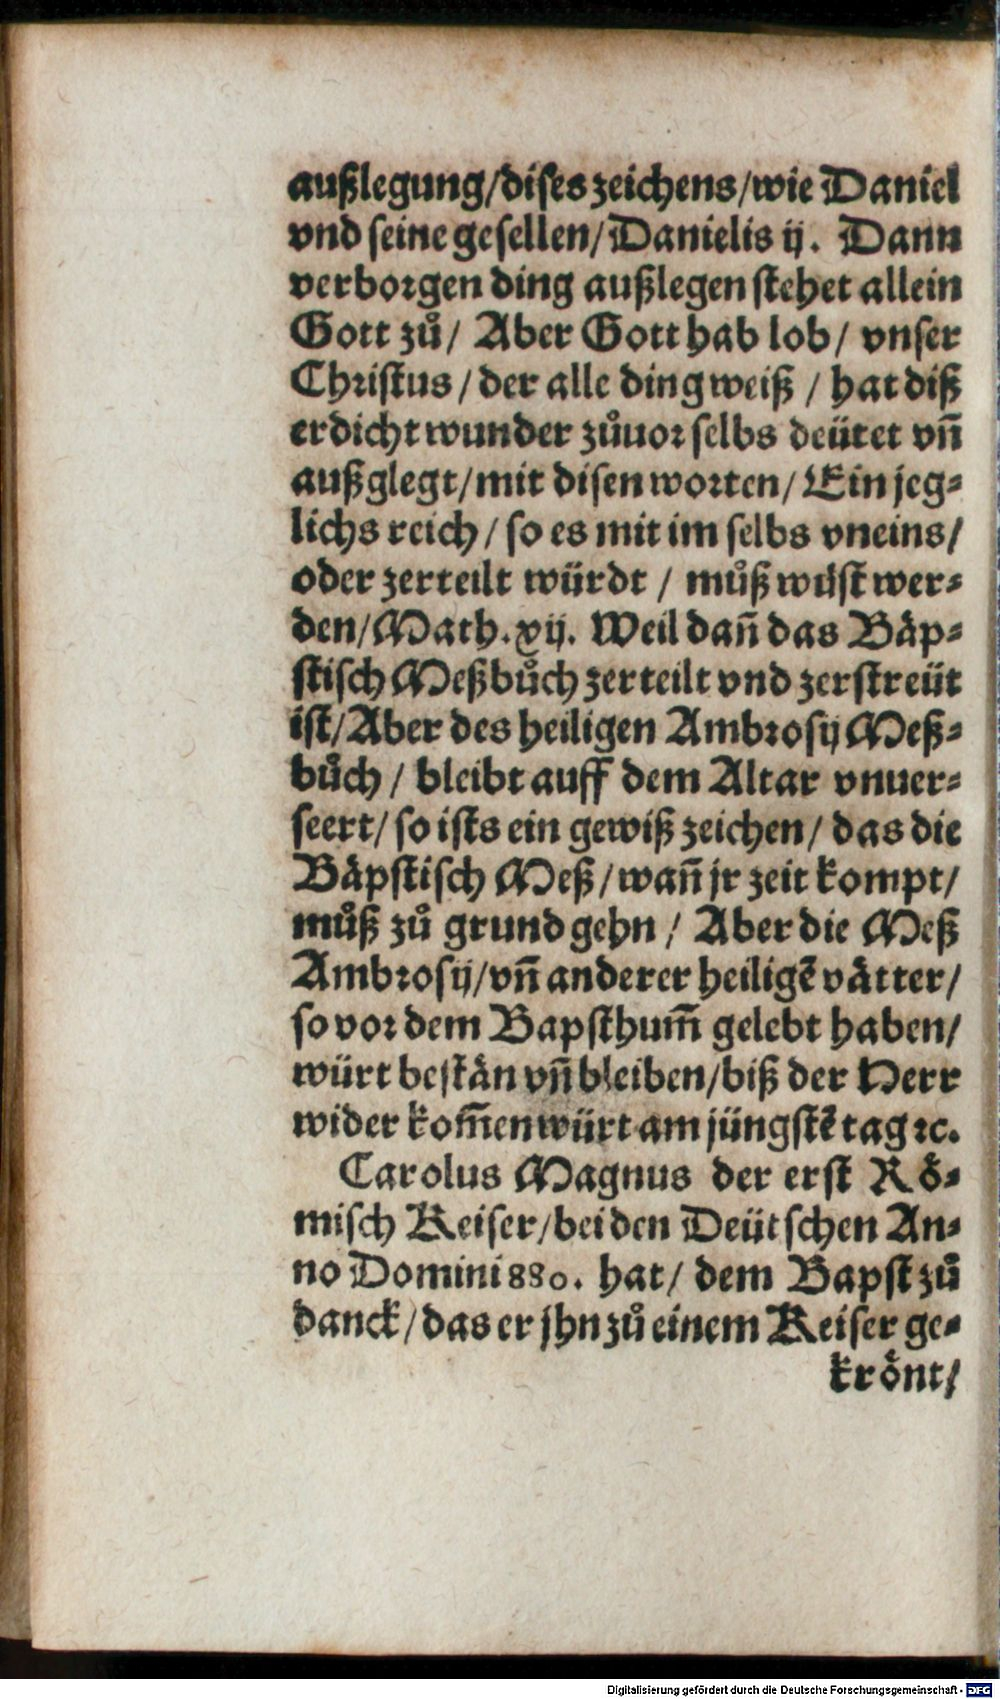 außlegung/dises zeichens/wie Daniel
vnd seine gesellen/Danielis ij. Dann
verborgen ding außlegen stehet allein
Gott zuͦ/ Aber Gott hab lob/ vnser
Christus/der alle ding weiß/ hat diß
erdicht wunder zuͦuor selbs deütet vñ
außglegt/mit disen worten/ Ein jeg⸗
lichs reich/ so es mit im selbs vneins/
oder zerteilt würdt/ muͦß wuͤst wer⸗
den/Math.xij. Weil dañ das Baͤp⸗
stisch Meßbuͦch zerteilt vnd zerstreüt
ist/Aber des heiligen Ambrosij Meß⸗
buͦch/ bleibt auff dem Altar vnuer⸗
seert/so ists ein gewiß zeichen/ das die
Baͤpstisch Meß/wañ jr zeit kompt/
muͦß zuͦ grund gehn/ Aber die Meß
Ambrosij/vñ anderer heiligẽ vaͤtter/
so vor dem Bapsthum̃ gelebt haben/
würt bestaͤn vñ bleiben/biß der Herr
wider kom̃en würt am jüngstẽ tag ꝛc.
Carolus Magnus der erst Roͤ⸗
misch Keiser/bei den Deütschen An⸗
no Domini 880. hat/ dem Bapst zuͦ
danck/das er jhn zuͦ einem Keiser ge⸗
kroͤnt/
Digitalisierung gefördert durch die Deutsche Forschungsgemeinschaft - DFG